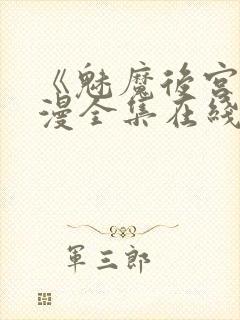 《魅魔後宮
漫全集在綫
軍三郎